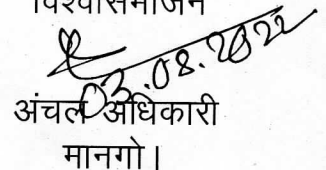 विश्वासभाजन
03.08.2022
अंचल अधिकारी
मानगो।